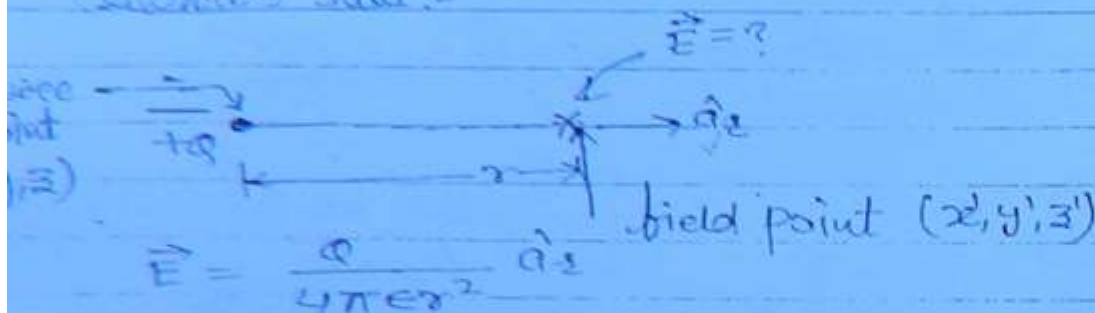 E⃗ = ?
+Q
â_r
r
,z)
field point (x', y', z')
E⃗ = Q / 4πεr² â_r